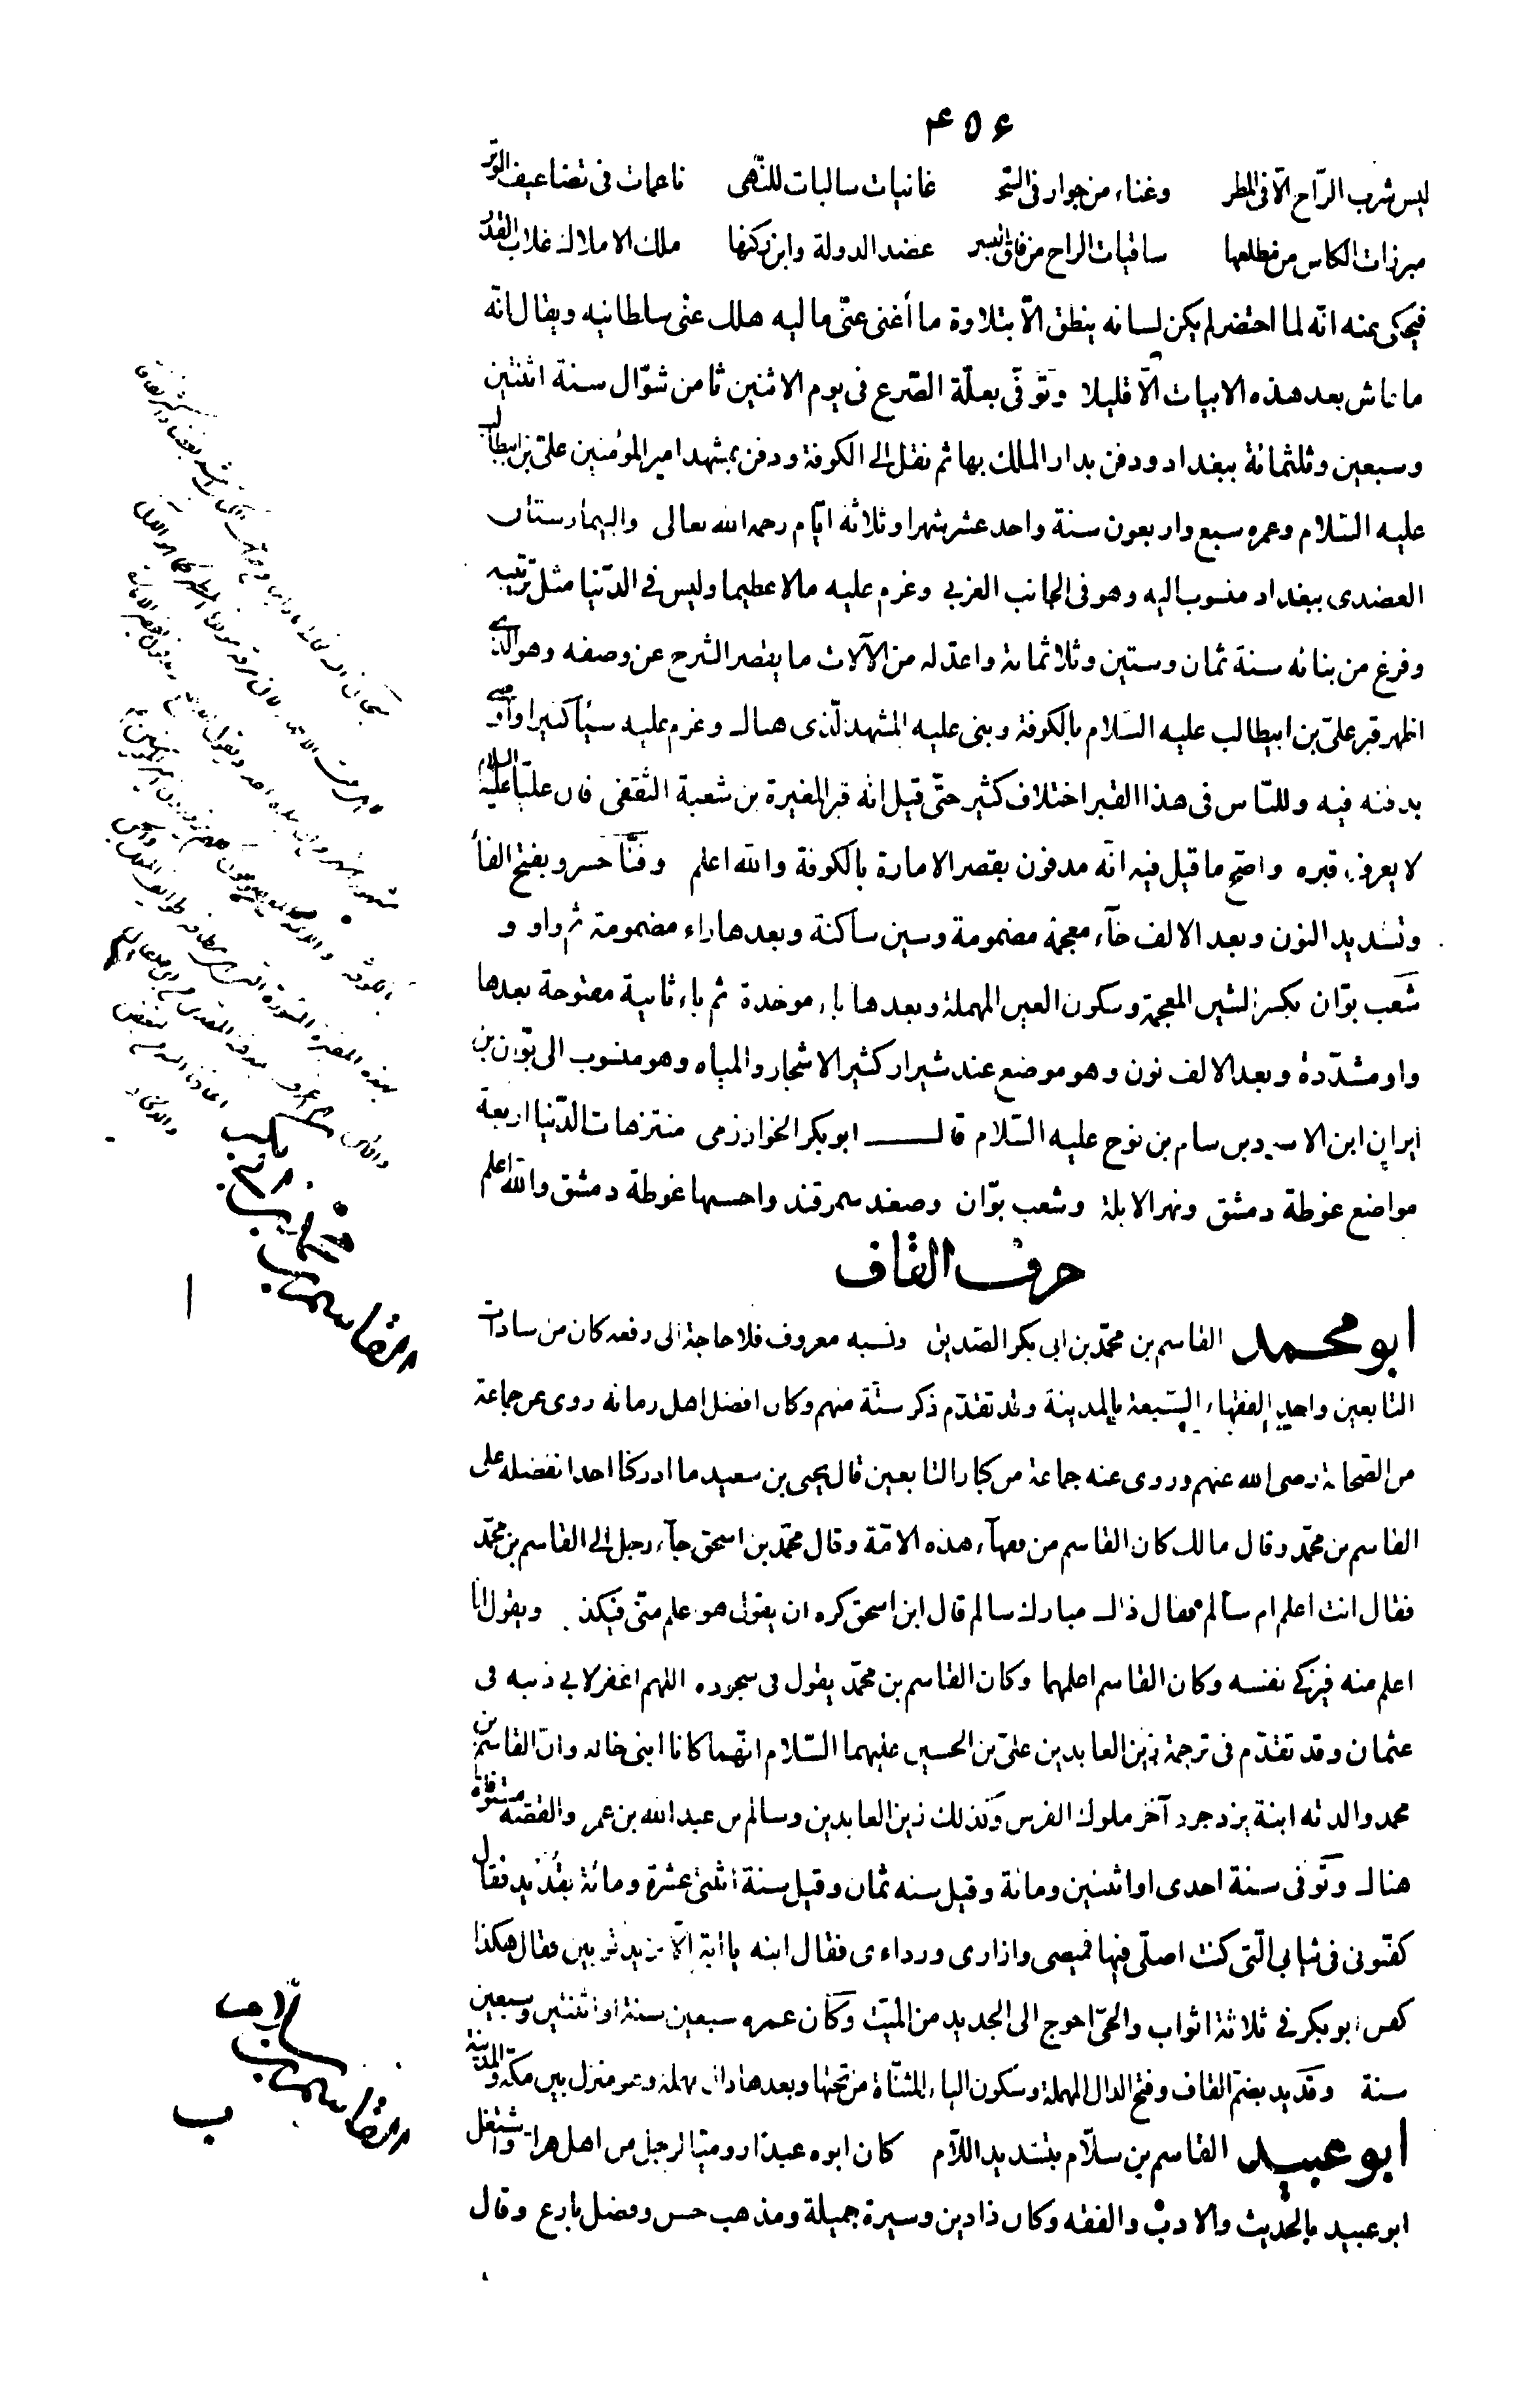 ٤٥٤
ليس شرب الرّاح الّا فى المطر وغناء من جوار فى السّحر غانيات سالبات للنّهى ناعمات فى تضاعيف الوتر
مبرزات الكاس من مطلعها ساقيات الراح من فاق البشر عضد الدولة وابن ركنها ملك الاملاك غلاب القدر
فيحكى عنه انّه لما احتضر لم يكن لسانه ينطق الّا بتلاوة ما أغنى عنّى ماليه هلك عنّى سلطانيه ويقال انّه
ما عاش بعد هذه الابيات الّا قليلا وتوفّى بعلّة الصّرع فى يوم الاثنين ثامن شوّال سنة اثنتين
وسبعين وثلثمائة ببغداد ودفن بدار الملك بها ثم نقل الى الكوفة ودفن بمشهد امير المؤمنين علىّ بن ابيطالب
عليه السّلام وعمره سبع واربعون سنة واحد عشر شهرا وثلاثة ايّام رحمه الله تعالى والبيمارستان
العضدى ببغداد منسوب اليه وهو فى الجانب الغربى وغرم عليه مالا عظيما وليس فى الدّنيا مثل ترتيبه
وفرغ من بنائه سنة ثمان وستين وثلاثمائة واعدّ له من الآلات ما يقصر الشرح عن وصفه وهو الّذى
اظهر قبر علىّ بن ابيطالب عليه السّلام بالكوفة وبنى عليه المشهد الّذى هناك وغرم عليه شيأ كثيرا واوصى
بدفنه فيه وللنّاس فى هذا القبر اختلاف كثير حتّى قيل انه قبر المغيرة بن شعبة الثقفى فان عليّا عليه السلام
لا يعرف قبره واصحّ ما قيل فيه انّه مدفون بقصر الامارة بالكوفة والله اعلم وفنّا خسرو بفتح الفأ
وتشديد النون وبعد الالف خآء معجمة مضمومة وسين ساكنة وبعدها راء مضمومة ثم واو و
شعب بوّان بكسر الشين المعجمة وسكون العين المهملة وبعدها باء موحدة ثم باء ثانية مفتوحة بعدها
واو مشدّدة وبعد الالف نون وهو موضع عند شيراز كثير الاشجار والمياه وهو منسوب الى بوّان بن
ايران ابن الاسود بن سام بن نوح عليه السّلام قال ابو بكر الخوارزمى منتزهات الدّنيا اربعة
مواضع غوطة دمشق ونهر الابلة وشعب بوّان وصغد سمرقند واحسنها غوطة دمشق والله اعلم
حرف القاف
ابو محمد القاسم بن محمّد بن ابى بكر الصّديق ونسبه معروف فلا حاجة الى رفعه كان من سادات
التابعين واحد الفقهاء السّبعة بالمدينة وقد تقدّم ذكر ستّة منهم وكان افضل اهل زمانه روى عن جماعة
من الصّحابة رضى الله عنهم وروى عنه جماعة من كبار التابعين قال يحيى بن سعيد ما ادركنا احدا نفضله على
القاسم بن محمّد وقال مالك كان القاسم من فقهآء هذه الامّة وقال محمّد بن اسحق جآء رجل الى القاسم بن محمّد
فقال انت اعلم ام سالم فقال ذاك مبارك سالم قال ابن اسحق كره ان يقول هو اعلم منّى فيكذب ويقول انا
اعلم منه فيزكّى نفسه وكان القاسم اعلمهما وكان القاسم بن محمّد يقول فى سجوده اللهم اغفر لابى ذنبه فى
عثمان وقد تقدّم فى ترجمة زين العابدين علىّ بن الحسين عليهما السّلام انّهما كانا ابنى خاله وانّ القاسم بن
محمد والدته ابنة يزدجرد آخر ملوك الفرس وكذلك زين العابدين وسالم بن عبد الله بن عمر والقصّة مستوفاة
هناك وتوفى سنة احدى او اثنتين ومائة وقيل سنه ثمان وقيل سنة اثنتى عشرة ومائة بقديد فقال
كفّنونى فى ثيابى الّتى كنت اصلّى فيها قميصى وازارى وردائى فقال ابنه يا ابة الّا نزيد ثوبين فقال هكذا
كفن ابو بكر فى ثلاثة اثواب والحىّ احوج الى الجديد من الميّت وكان عمره سبعين سنة او اثنتين وسبعين
سنة وقديد بضمّ القاف وفتح الدال المهملة وسكون الياء المثنّاة من تحتها وبعدها دال مهملة وهو منزل بين مكّة والمدينة
ابو عبيد القاسم بن سلّام بتشديد اللّام كان ابوه عبدا روميّا لرجل من اهل هراة واشتغل
ابو عبيد بالحديث والادب والفقه وكان ذا دين وسيرة جميلة ومذهب حسن وفضل بارع وقال
القاسم بن
ا
القاسم بن سلّام
ب